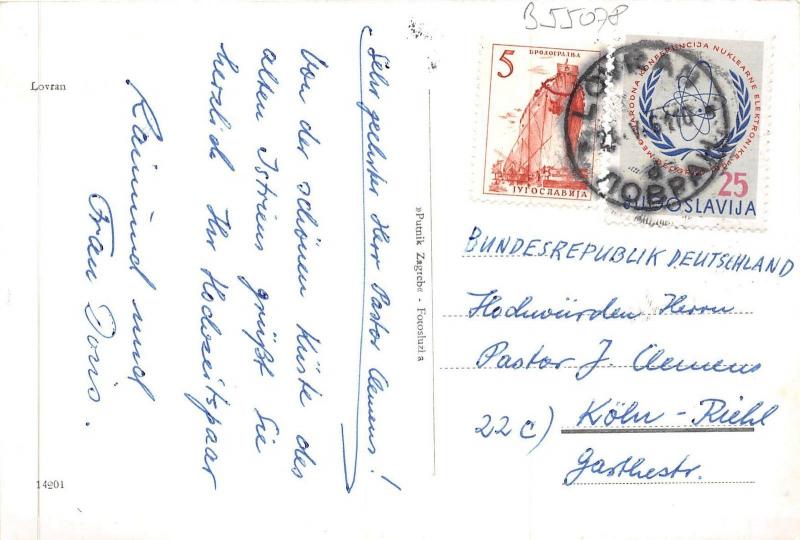 B55078
Lovran
Sehr geehrter Herr Pastor Clemens!
Von der schönen Küste des
alten Istriens grüßt Sie
herzlich Ihr Hochzeitspaar
Raimund und
Frau Doris.
14201
»Putnik Zagreb« - Fotosluzba
5
БРОДОГРАДЊА
ЈУГОСЛАВИЈА
MEĐUNARODNA KONFERENCIJA NUKLEARNE ELEKTRONIKE
25
JUGOSLAVIJA
LOVRAN
ЛОВРАН
BUNDESREPUBLIK DEUTSCHLAND
Hochwürden Herrn
Pastor J. Clemens
22c) Köln - Riehl
Garthestr.